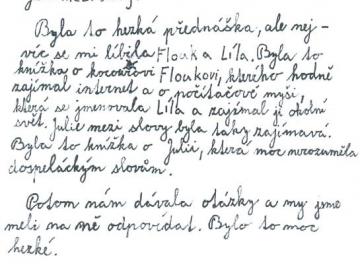 Byla to hezká přednáška, ale nej-
víc se mi líbila Flouk a Líla. Byla to
knížka o kocourovi Floukovi, kterého hodně
zajímal internet a o počítačové myši,
která se jmenovala Líla a zajímal ji okolní
svět. Julie mezi slovy byla taky zajímavá.
Byla to knížka o Julii, která moc nerozuměla
dospeláckým slovům.
Potom nám dávala otázky a my jsme
meli na ně odpovídat. Bylo to moc
hezké.